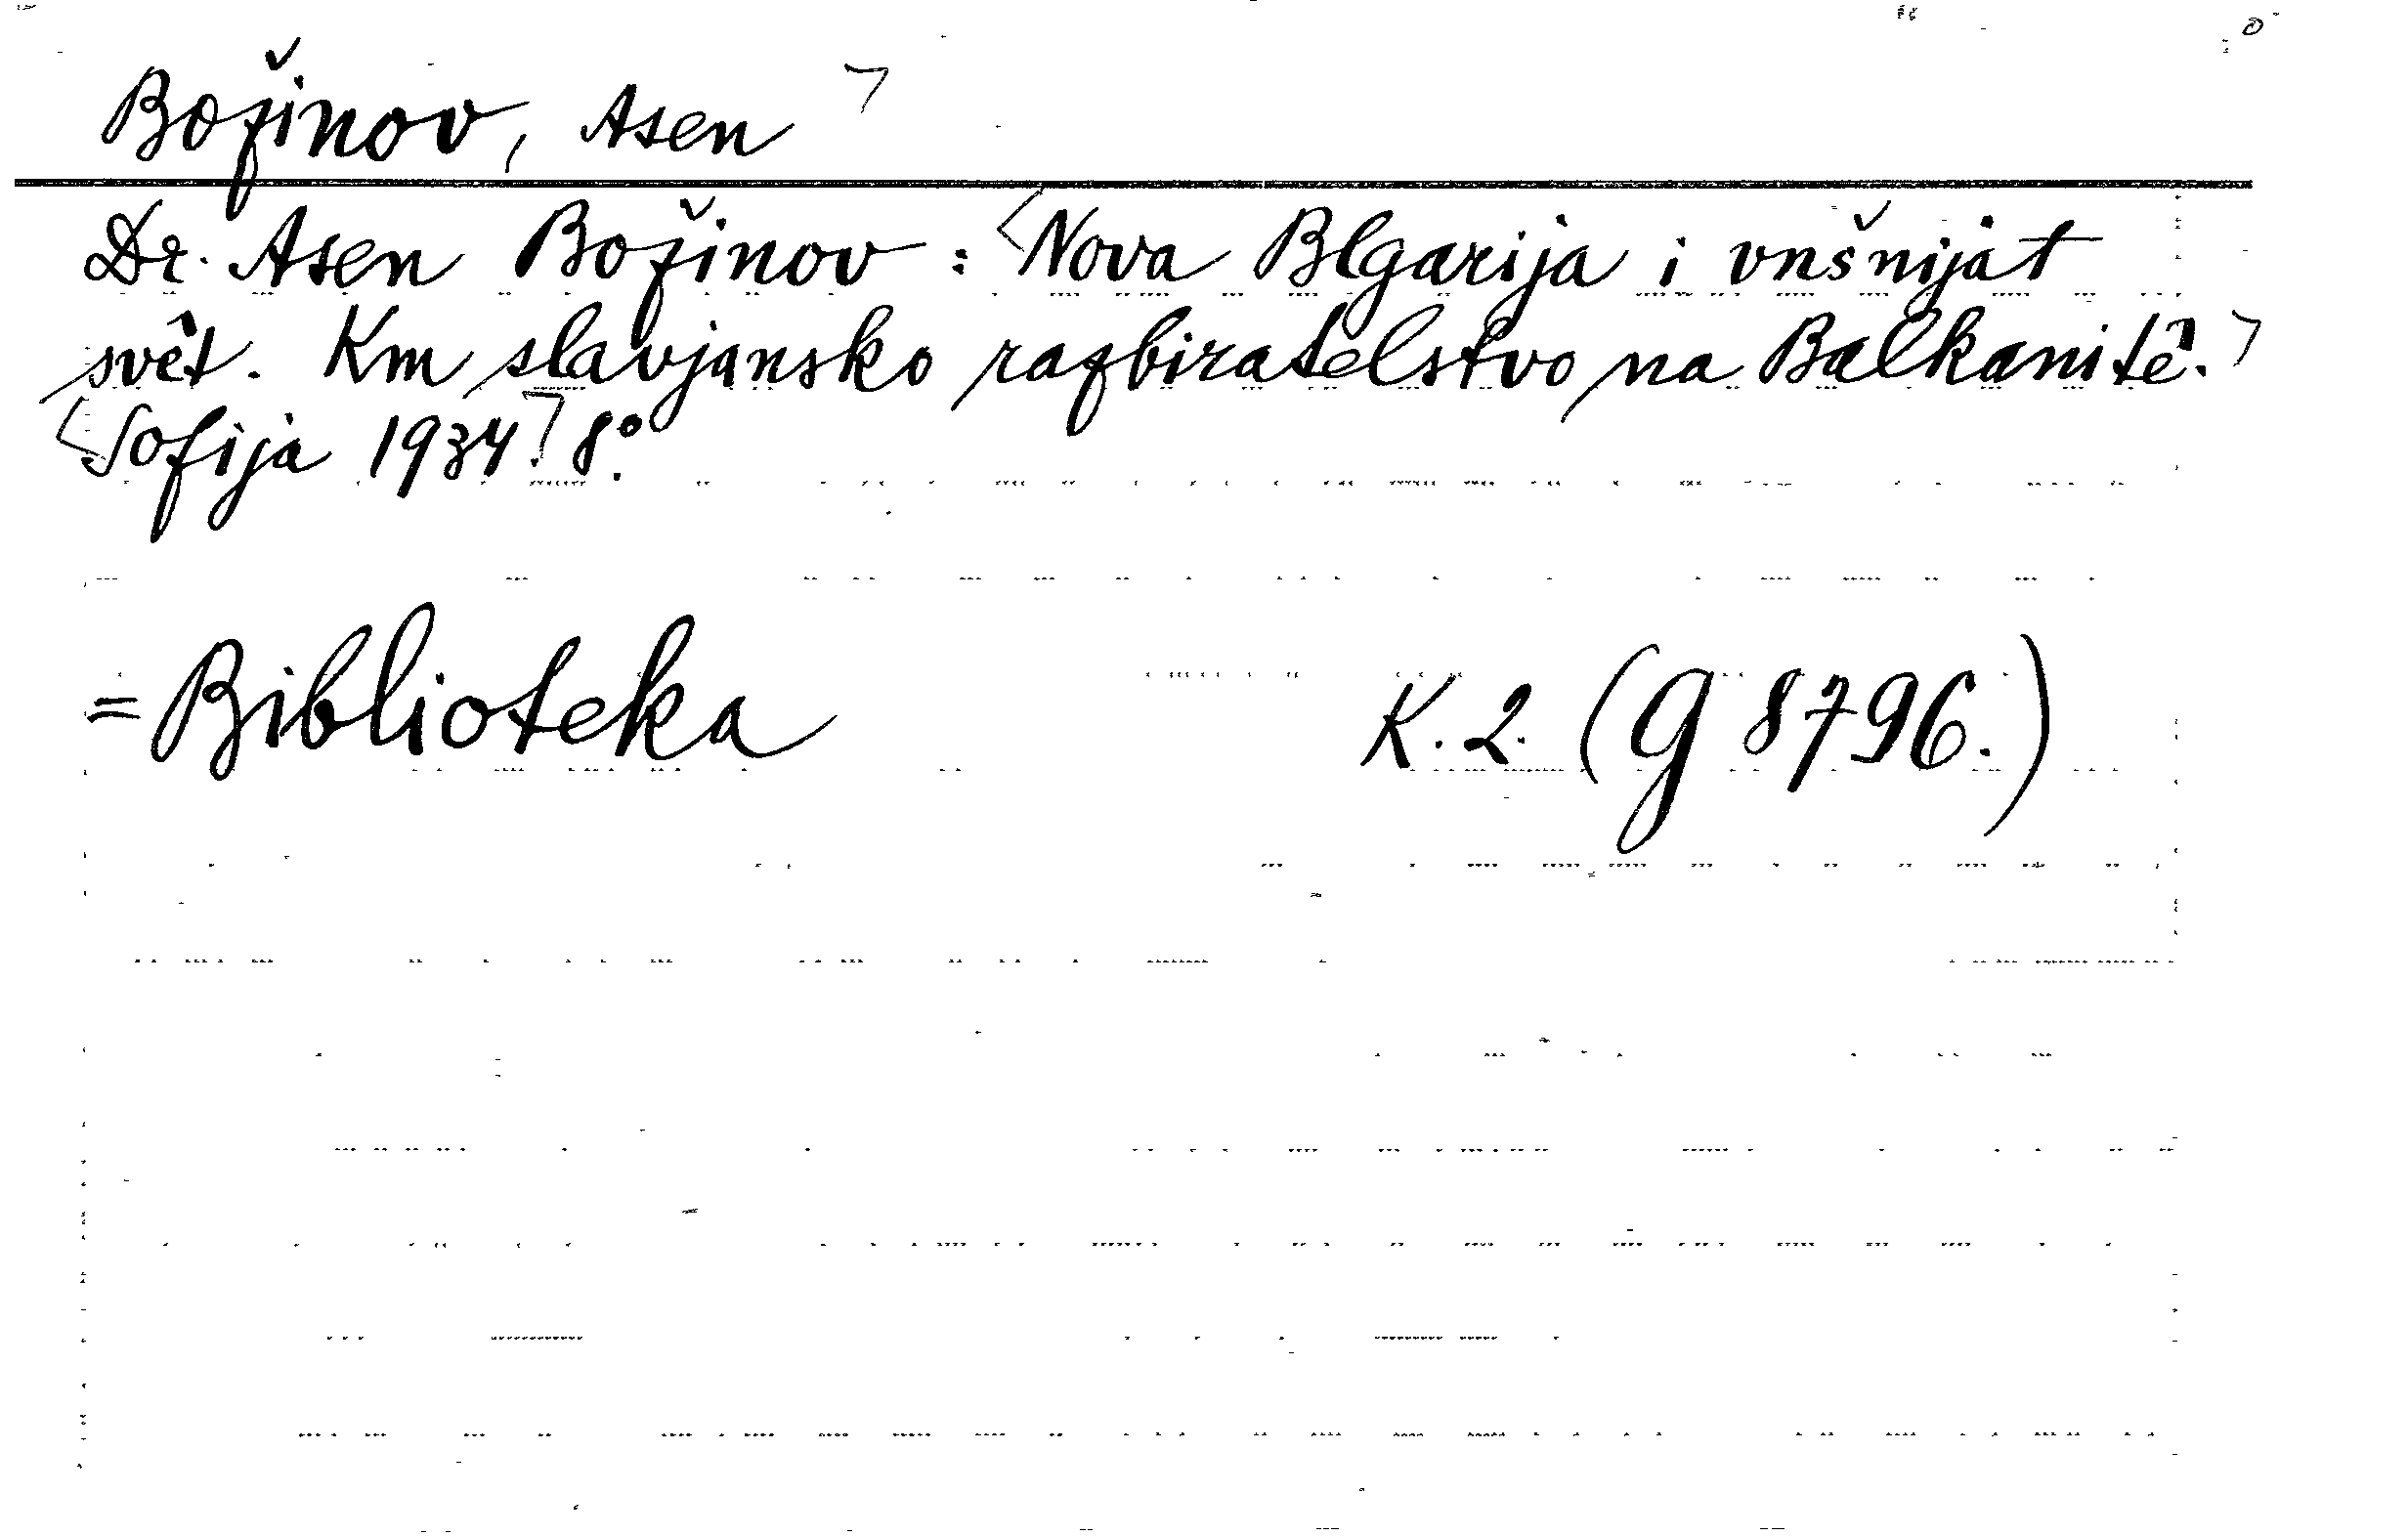 Božinov, Asen
Dr. Asen Božinov : Nova Blgarija i vnšnijat
svêt. Km slavjansko razbiratelstvo na Balkanitê.
Sofija 1934. 8°.
= Biblioteka K. 2. (G 8796.)